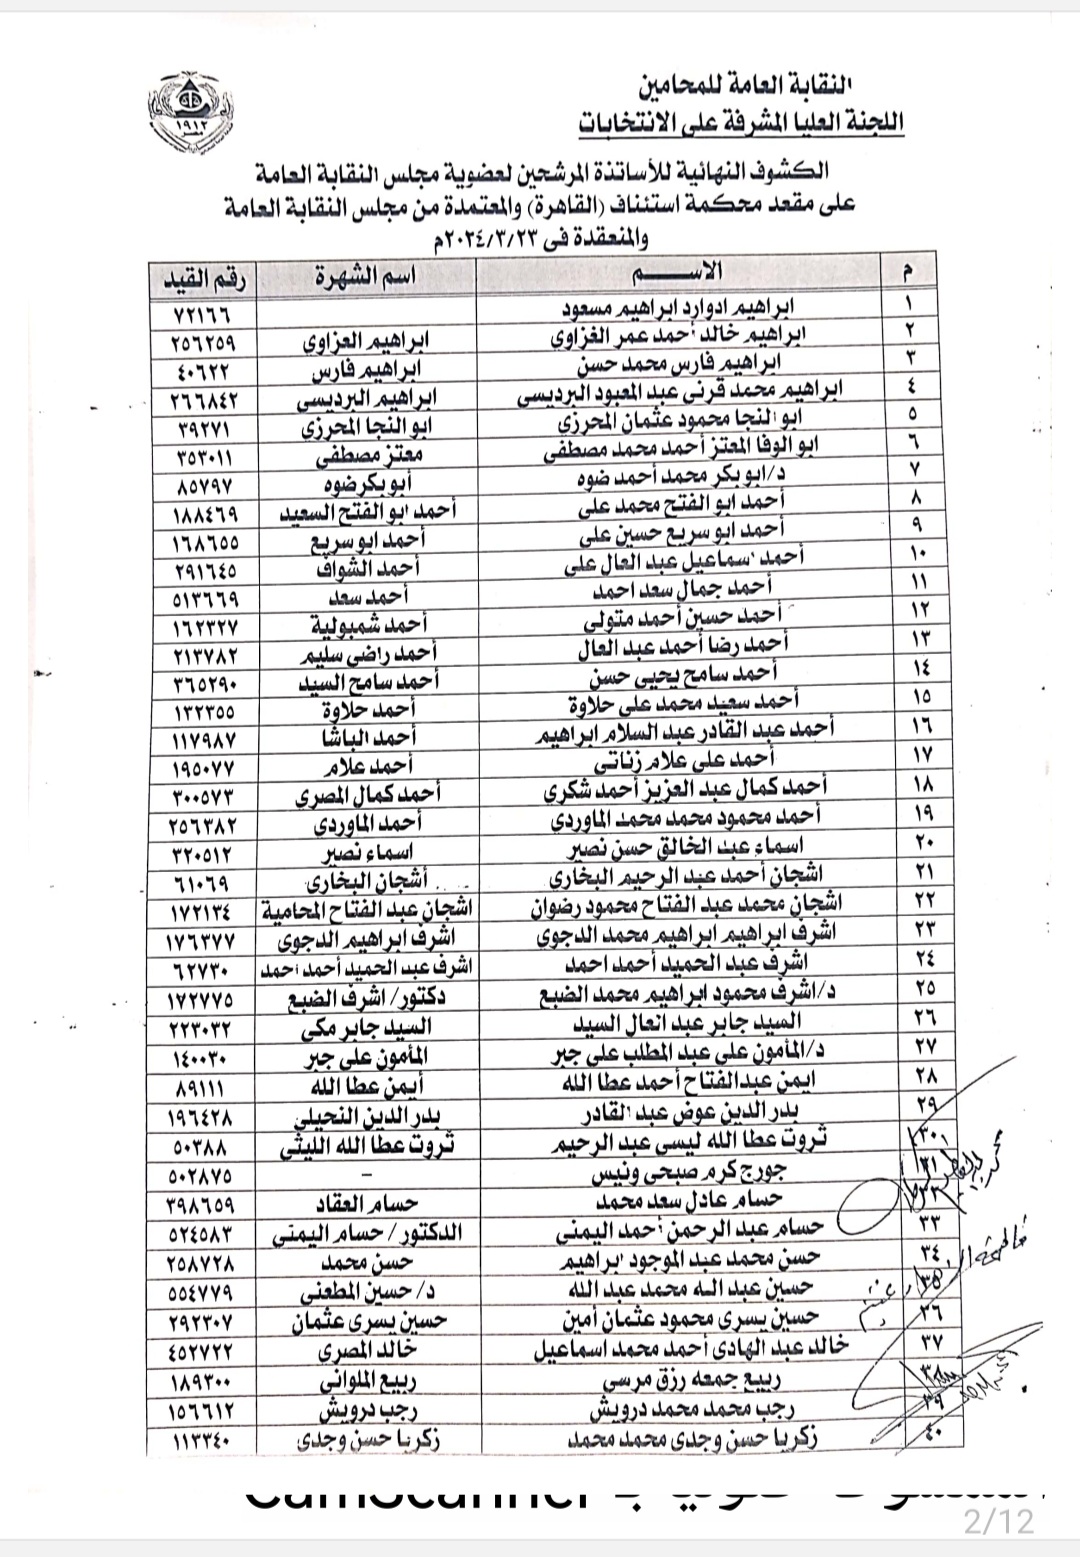 النقابة العامة للمحامين
اللجنة العليا المشرفة على الانتخابات
١٩١٢
مصر
الكشوف النهائية للأساتذة المرشحين لعضوية مجلس النقابة العامة
على مقعد محكمة استئناف (القاهرة) والمعتمدة من مجلس النقابة العامة
والمنعقدة فى ٢٠٢٤/٣/٢٣م
م الاســـــــم اسم الشهرة رقم القيد
١ ابراهيم ادوارد ابراهيم مسعود ٧٢١٦٦
٢ ابراهيم خالد أحمد عمر الغزاوي ابراهيم العزاوي ٢٥٦٢٥٩
٣ ابراهيم فارس محمد حسن ابراهيم فارس ٤٠٦٢٢
٤ ابراهيم محمد قرنى عبد المعبود البرديسى ابراهيم البرديسى ٢٦٦٨٤٢
٥ ابو النجا محمود عثمان المحرزي ابو النجا المحرزي ٣٩٢٧١
٦ ابو الوفا المعتز أحمد محمد مصطفى معتز مصطفى ٣٥٣٠١١
٧ د/ابوبكر محمد أحمد ضوه أبوبكرضوه ٨٥٧٩٧
٨ أحمد ابو الفتح محمد على أحمد ابو الفتح السعيد ١٨٨٤٦٩
٩ أحمد ابو سريع حسين على أحمد ابو سريع ١٦٨٦٥٥
١٠ أحمد اسماعيل عبد العال على أحمد الشواف ٢٩١٦٤٥
١١ أحمد جمال سعد احمد أحمد سعد ٥١٣٦٦٩
١٢ أحمد حسين أحمد متولى أحمد شمبولية ١٦٢٣٢٧
١٣ أحمد رضا أحمد عبد العال أحمد راضى سليم ٢١٣٧٨٢
١٤ أحمد سامح يحيى حسن أحمد سامح السيد ٣٦٥٢٩٠
١٥ أحمد سعيد محمد على حلاوة أحمد حلاوة ١٣٢٣٥٥
١٦ أحمد عبد القادر عبد السلام ابراهيم أحمد الباشا ١١٧٩٨٧
١٧ أحمد على علام زناتى أحمد علام ١٩٥٠٧٧
١٨ أحمد كمال عبد العزيز أحمد شكري أحمد كمال المصري ٣٠٠٥٧٣
١٩ أحمد محمود محمد محمد الماوردي أحمد الماوردي ٢٥٦٣٨٢
٢٠ اسماء عبد الخالق حسن نصير اسماء نصير ٣٢٠٥١٢
٢١ اشجان أحمد عبد الرحيم البخارى أشجان البخارى ٦١٠٦٩
٢٢ اشجان محمد عبد الفتاح محمود رضوان اشجان عبد الفتاح المحامية ١٧٢١٣٤
٢٣ اشرف ابراهيم ابراهيم محمد الدجوى اشرف ابراهيم الدجوى ١٧٦٣٧٧
٢٤ اشرف عبد الحميد أحمد احمد اشرف عبد الحميد أحمد احمد ٦٢٧٣٠
٢٥ د/اشرف محمود ابراهيم محمد الضبع دكتور/ اشرف الضبع ١٧٢٧٧٥
٢٦ السيد جابر عبد العال السيد السيد جابر مكى ٢٢٣٠٣٢
٢٧ د/المأمون على عبد المطلب على جبر المأمون على جبر ١٤٠٠٣٠
٢٨ ايمن عبدالفتاح أحمد عطا الله أيمن عطا الله ٨٩١١١
٢٩ بدر الدين عوض عبد القادر بدر الدين النحيلى ١٩٦٤٢٨
٣٠ ثروت عطا الله ليسى عبد الرحيم ثروت عطا الله الليثى ٥٠٣٨٨
٣١ جورج كرم صبحى ونيس – ٥٠٢٨٧٥
٣٢ حسام عادل سعد محمد حسام العقاد ٣٩٨٦٥٩
٣٣ حسام عبد الرحمن أحمد اليمنى الدكتور/ حسام اليمنى ٥٢٤٥٨٣
٣٤ حسن محمد عبد الموجود ابراهيم حسن محمد ٢٥٨٧٢٨
٣٥ حسين عبد الله محمد عبد الله د/ حسين المطعنى ٥٥٤٧٧٩
٣٦ حسين يسرى محمود عثمان أمين حسين يسرى عثمان ٢٩٢٣٠٧
٣٧ خالد عبد الهادى أحمد محمد اسماعيل خالد المصرى ٤٥٢٧٢٢
٣٨ ربيع جمعه رزق مرسى ربيع الملوانى ١٨٩٣٠٠
٣٩ رجب محمد محمد درويش رجب درويش ١٥٦٦١٢
٤٠ زكريا حسن وجدى محمد محمد زكريا حسن وجدى ١١٣٣٤٠
CamScanner
2/12